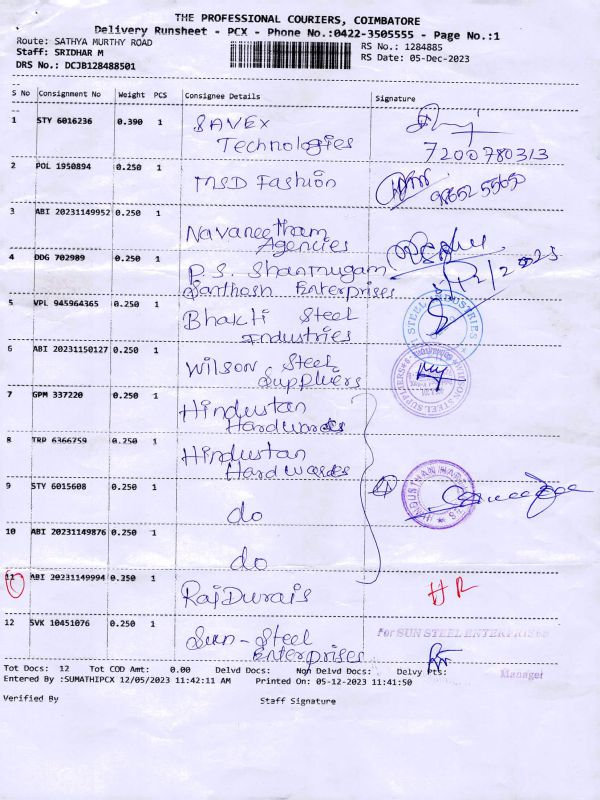 THE PROFESSIONAL COURIERS, COIMBATORE
Delivery Runsheet - PCX - Phone No.:0422-3505555 - Page No.:1
Route: SATHYA MURTHY ROAD
RS No.: 1284885
Staff: SRIDHAR M
RS Date: 05-Dec-2023
DRS No.: DCJB128488501
S No Consignment No Weight PCS Consignee Details Signature
1 STY 6016236 0.390 1 SAVEX
Technologies
7200780313
2 POL 1950894 0.250 1 MSD Fashion
3 ABI 20231149952 0.250 1 Navaneetham
Agencies
4 DDG 702989 0.250 1 P.S. Shanmugam
Santhosh Enterprises
5/12/2023
5 VPL 945964365 0.250 1 Bhakti Steel
Industries
STEEL INDUSTRIES
6 ABI 20231150127 0.250 1 Wilson Steel
Suppliers
WILSON STEEL SUPPLIERS
7 GPM 337220 0.250 1 Hindustan
Hardwares
8 TRP 6366759 0.250 1 Hindustan
Hardwares
9 STY 6015608 0.250 1 do
10 ABI 20231149876 0.250 1 do
11 ABI 20231149994 0.250 1 Raj Durais
12 SVK 10451076 0.250 1 Sun-Steel
Enterprises
for SUN STEEL ENTERPRISES
Manager
Tot Docs: 12 Tot COD Amt: 0.00 Delvd Docs: Non Delvd Docs: Delvy Pts:
Entered By :SUMATHIPCX 12/05/2023 11:42:11 AM Printed On: 05-12-2023 11:41:50
Verified By Staff Signature